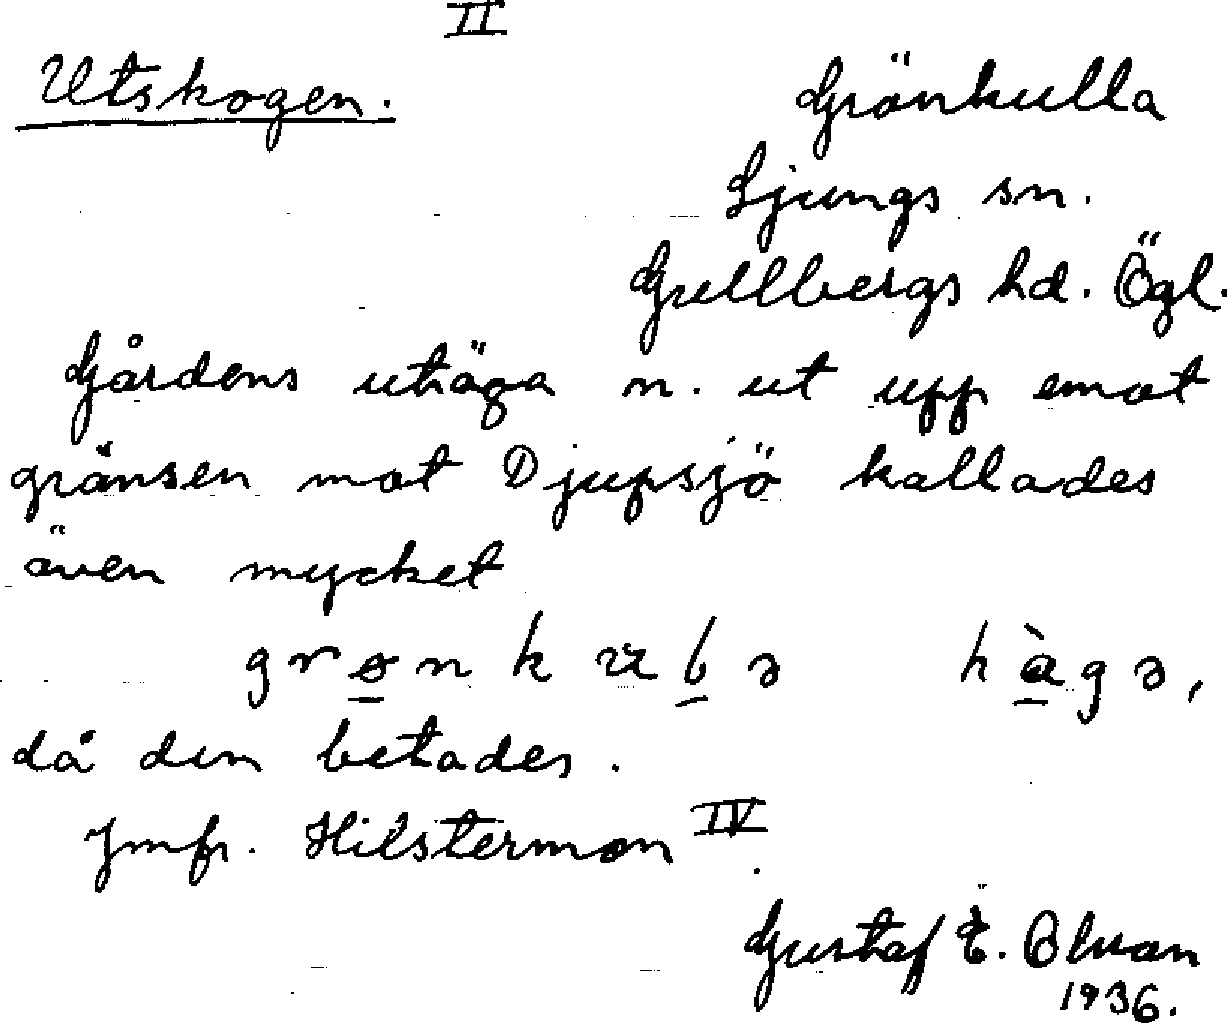 II
Utskogen.
Grönkulla
Ljungs sn.
Gullbergs hd. Ögl.
Gårdens utäga n. ut upp emot
gränsen mot Djupsjö kallades
även mycket
hàgə,
då den betades.
Jmfr. Hilstermon IV.
Gustaf E.
1936.